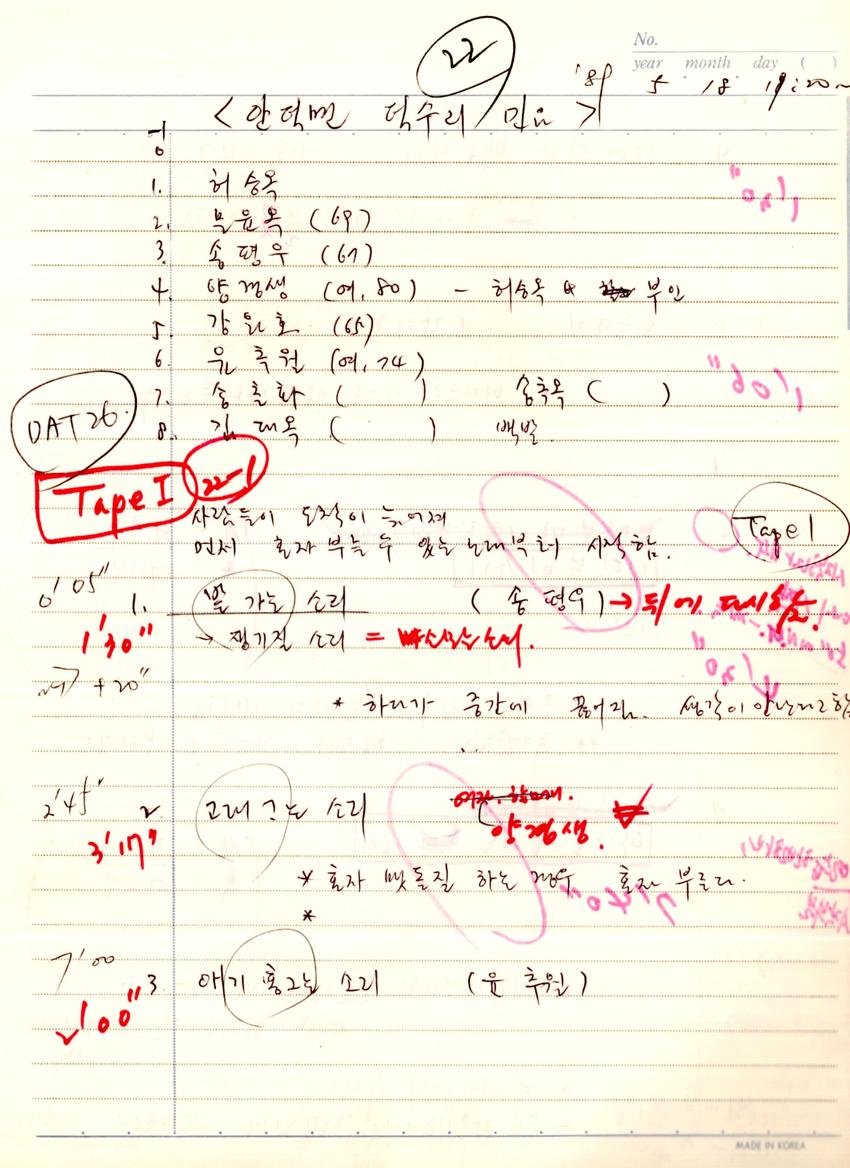 No.
year month day ( )
22
'89 5 18 19:20~
<안덕면 덕수리 민요>
1. 허승옥
2. 문윤옥 (69)
3. 송평우 (67)
4. 양경생 (여, 80) - 허승옥 부인
5. 강원호 (65)
6. 윤추월 (여, 74)
7. 송훈화 ( ) 송축옥 ( )
8. 김대옥 ( ) 백발
DAT 26.
Tape I 22-1
사람들이 도착이 늦어져
먼저 혼자 부늘 수 있는 노래부터 시작함.
Tape 1
0'05" 1. 밭 가는 소리 (송평우) → 뒤에 다시함.
1'30" → 쟁기질 소리 =
+20"
* 하다가 중간에 끊어짐. 생각이 안난다고 함
2'45" 2. 고래 ᄀ는 소리
양경생.
3'17"
* 혼자 맷돌질 하는 경우 혼자 부른다.
*
7'00 3 아기 흥그는 소리 (윤추월)
1'00"
MADE IN KOREA